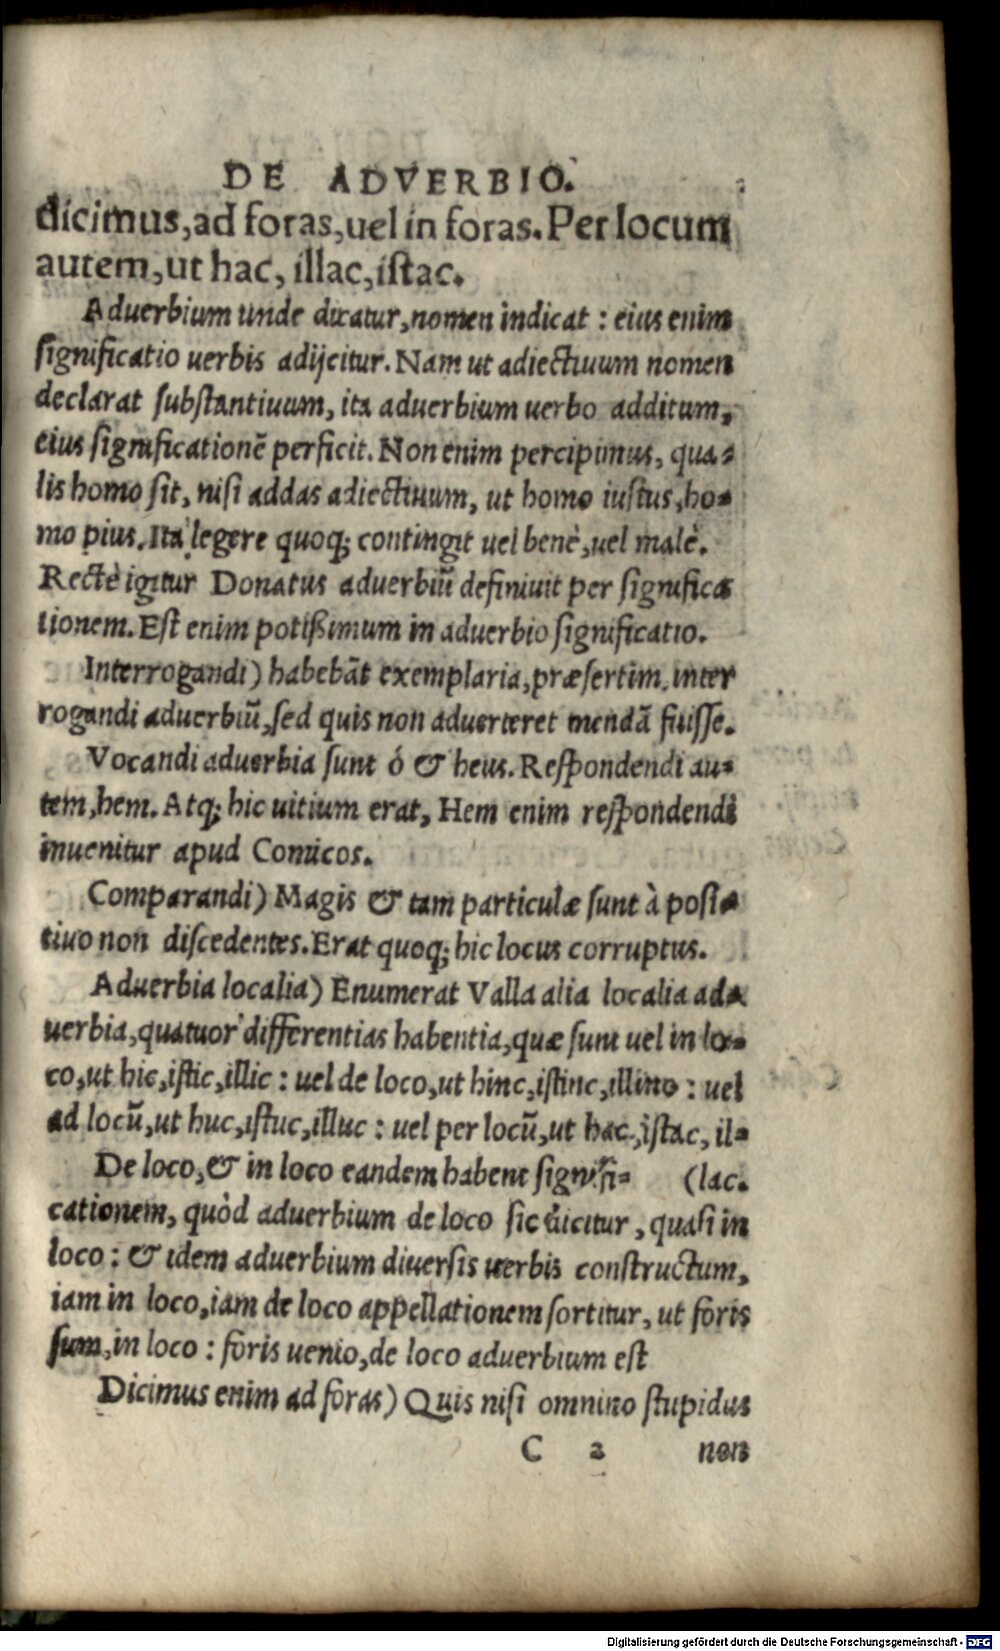 DE ADVERBIO.
dicimus,ad foras,uel in foras.Per locum
autem,ut hac, illac,istac.
Aduerbium unde dicatur,nomen indicat : eius enim
significatio uerbis adijcitur. Nam ut adiectiuum nomen
declarat substantiuum, ita aduerbium uerbo additum,
eius significationē perficit. Non enim percipimus, qua-
lis homo sit, nisi addas adiectiuum, ut homo iustus,ho-
mo pius. Ita legere quoq; contingit uel benè,uel malè.
Rectè igitur Donatus aduerbiū definiuit per significa
tionem. Est enim potißimum in aduerbio significatio.
Interrogandi) habebāt exemplaria,præsertim, inter
rogandi aduerbiū,sed quis non aduerteret mendā fuisse.
Vocandi aduerbia sunt ó & heus. Respondendi au-
tem,hem. Atq; hic uitium erat, Hem enim respondendi
inuenitur apud Comicos.
Comparandi) Magis & tam particulæ sunt à posi-
tiuo non discedentes.Erat quoq; hic locus corruptus.
Aduerbia localia) Enumerat Valla alia localia ad-
uerbia,quatuor differentias habentia,quæ sunt uel in lo-
co,ut hic,istic,illic : uel de loco,ut hinc,istinc,illinc : uel
ad locū,ut huc,istuc,illuc : uel per locū,ut hac,istac, il-
De loco,& in loco eandem habent signifi- (lac.
cationem, quòd aduerbium de loco sic dicitur, quasi in
loco : & idem aduerbium diuersis uerbis constructum,
iam in loco,iam de loco appellationem sortitur, ut foris
sum,in loco : foris uenio,de loco aduerbium est
Dicimus enim ad foras) Quis nisi omnino stupidus
C 2 non
Digitalisierung gefördert durch die Deutsche Forschungsgemeinschaft - DFG